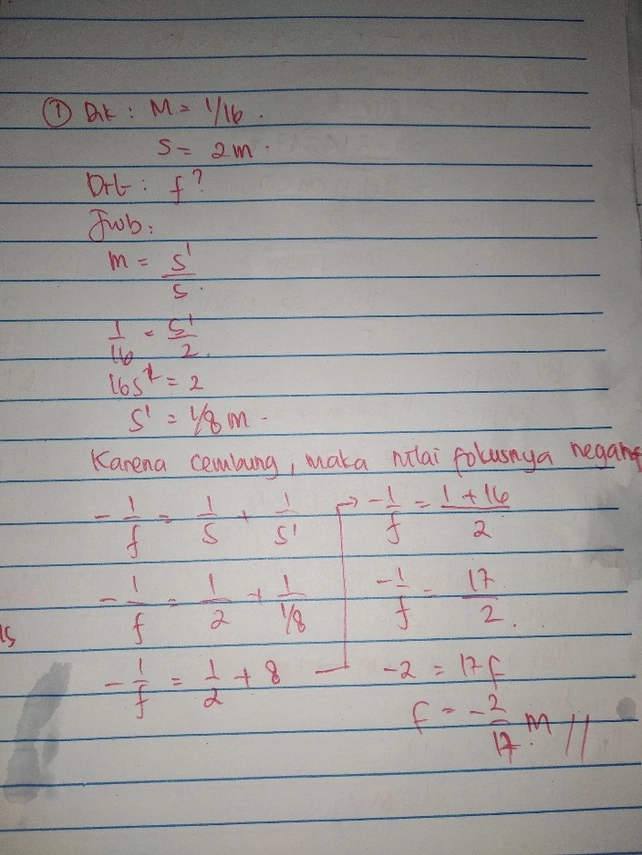 ① Dik : M = 1/16 .
S = 2 m .
Dit : f ?
Jwb :
M = S'/S .
1/16 = S'/2 .
16S' = 2
S' = 1/8 m .
Karena cembung, maka nilai fokusnya negatif
- 1/f = 1/S + 1/S'
- 1/f = 1/2 + 1/1/8
- 1/f = 1/2 + 8
→ - 1/f = 1 + 16/2
- 1/f = 17/2 .
-2 = 17 f
f = - 2/17 m //